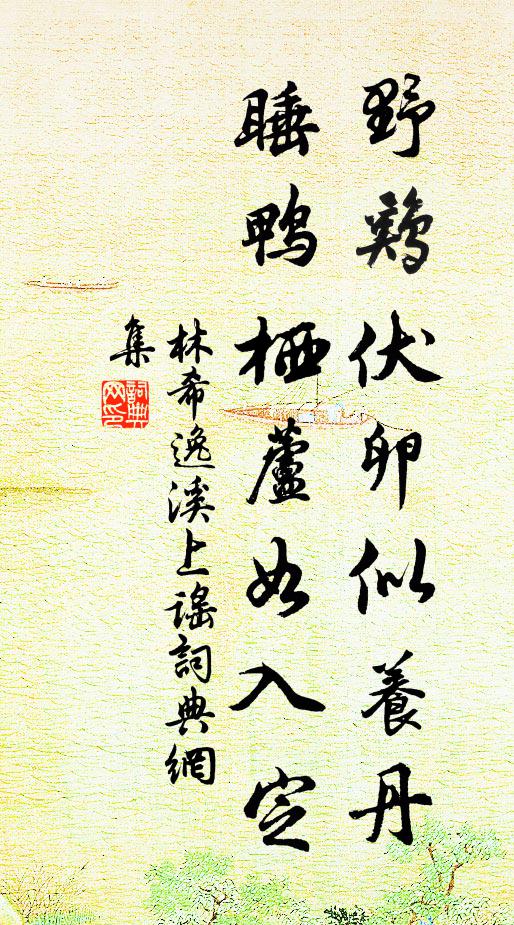 野鷄伏卵似養丹
睡鴨栖蘆如入定
林希逸溪上謠詞典網
集
詞典網印